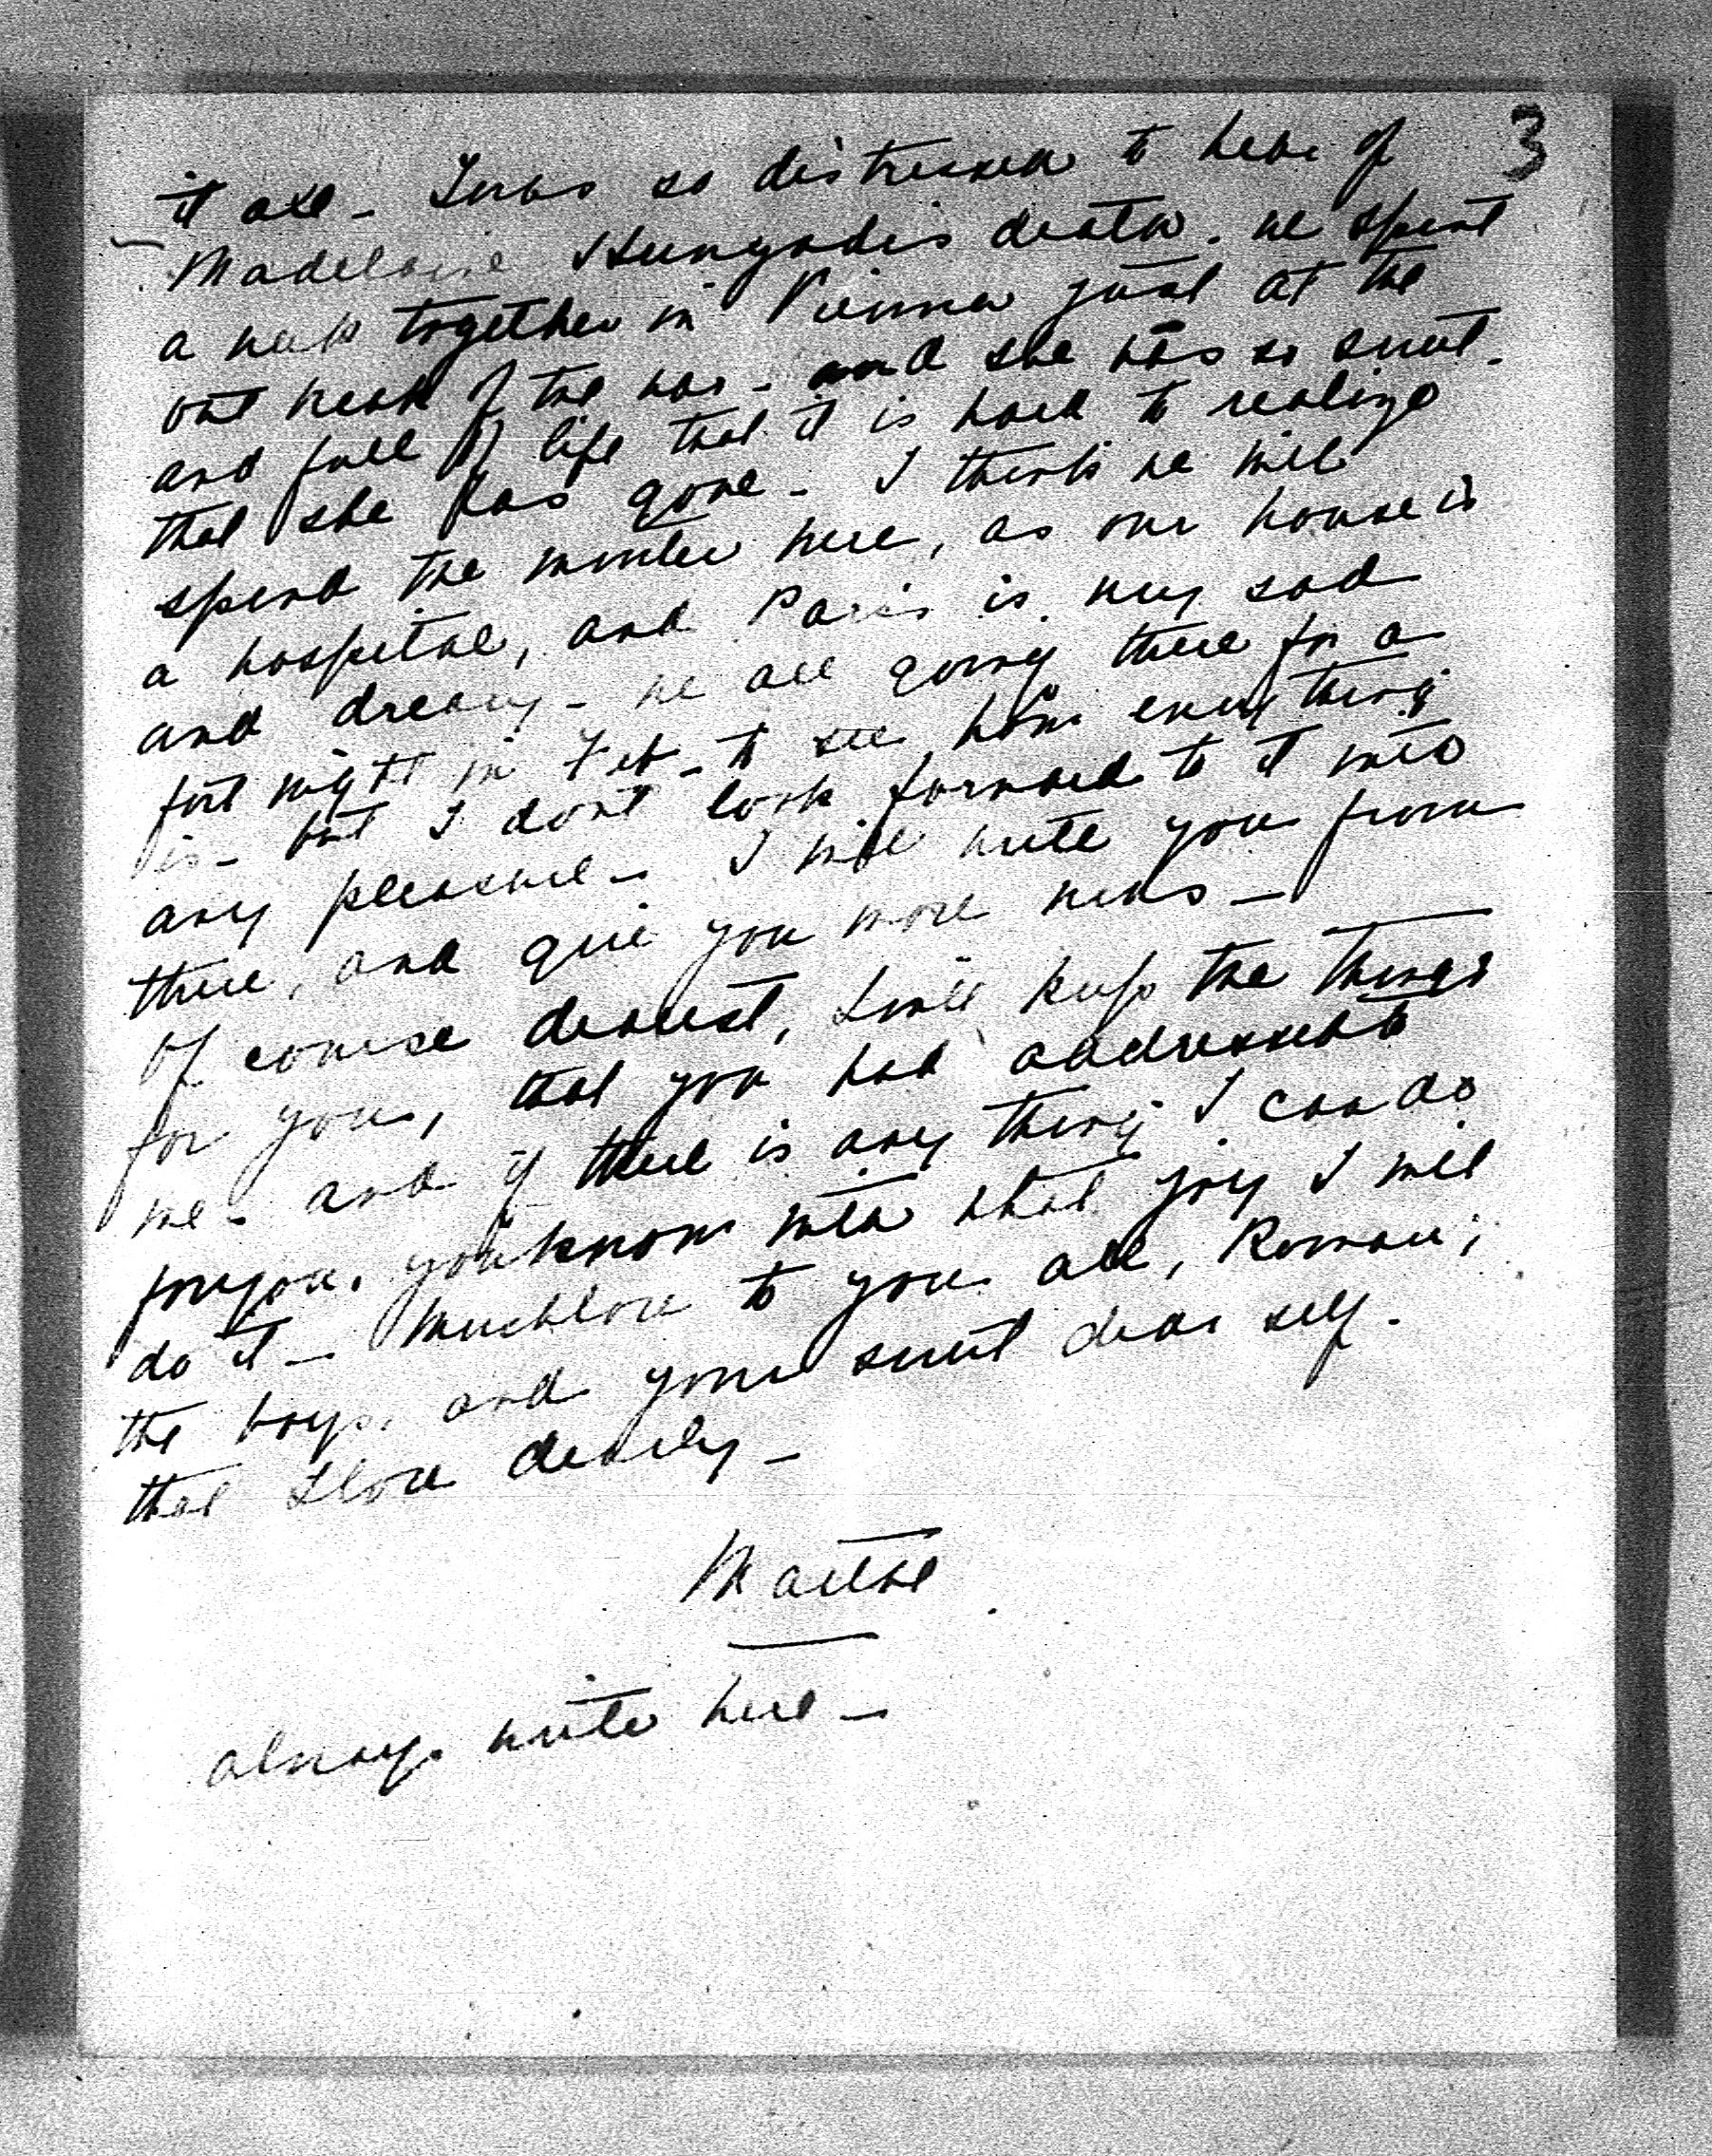 3
it all - I was so distressed to hear of
Madeleine Hunyadis death. we spent
a week together in Vienna just at the
out break of the war - and she was so sweet -
and full of life that it is hard to realize
that she has gone - I think we will
spend the winter here, as our house is
a hospital, and Paris is very sad
and dreary - we are going there for a
fort night in Feb - to see how everything
is - but I dont look forward to it with
any pleasure - I will write you from
there, and give you more news -
Of course dearest, I will keep the things
for you, that you had addressed to
me - and if there is any thing I can do
for you, you know with what joy I will
do it - Much love to you all, Roman,
the boys, and your sweet dear self.
that I love dearly -
Marthe
always write here -